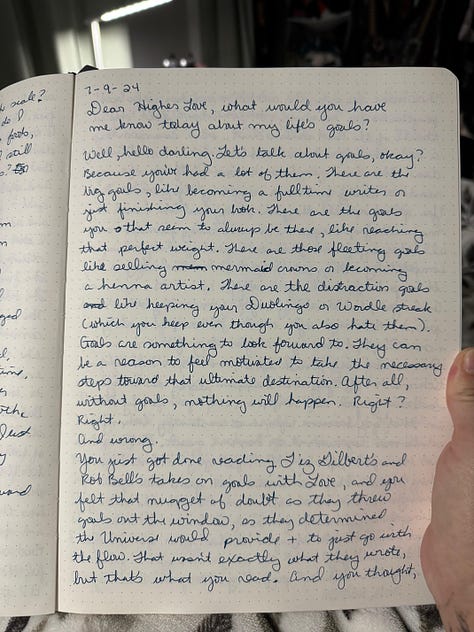 scale?
do I
foods,
I still
?
7-9-24
Dear Highes Love, what would you have
me know today about my life's goals?
Well, hello darling. Let's talk about goals, okay?
Because you've had a lot of them. There are the
big goals, like becoming a fulltime writer or
just finishing your book. There are the goals
you that seem to always be there, like reaching
that perfect weight. There are those fleeting goals
like selling mermaid crowns or becoming
a henna artist. There are the distraction goals
and like keeping your Duolingo or Wordle streak
(which you keep even though you also hate them).
Goals are something to look forward to. They can
be a reason to feel motivated to take the necessary
steps toward that ultimate destination. After all,
without goals, nothing will happen. Right?
Right.
And wrong.
You just got done reading Liz Gilbert's and
Rob Bell's takes on goals with Love, and you
felt that nugget of doubt as they threw
goals out the window, as they determined
the Universe would provide + to just go with
the flow. That wasn't exactly what they wrote,
but that's what you read. And you thought,